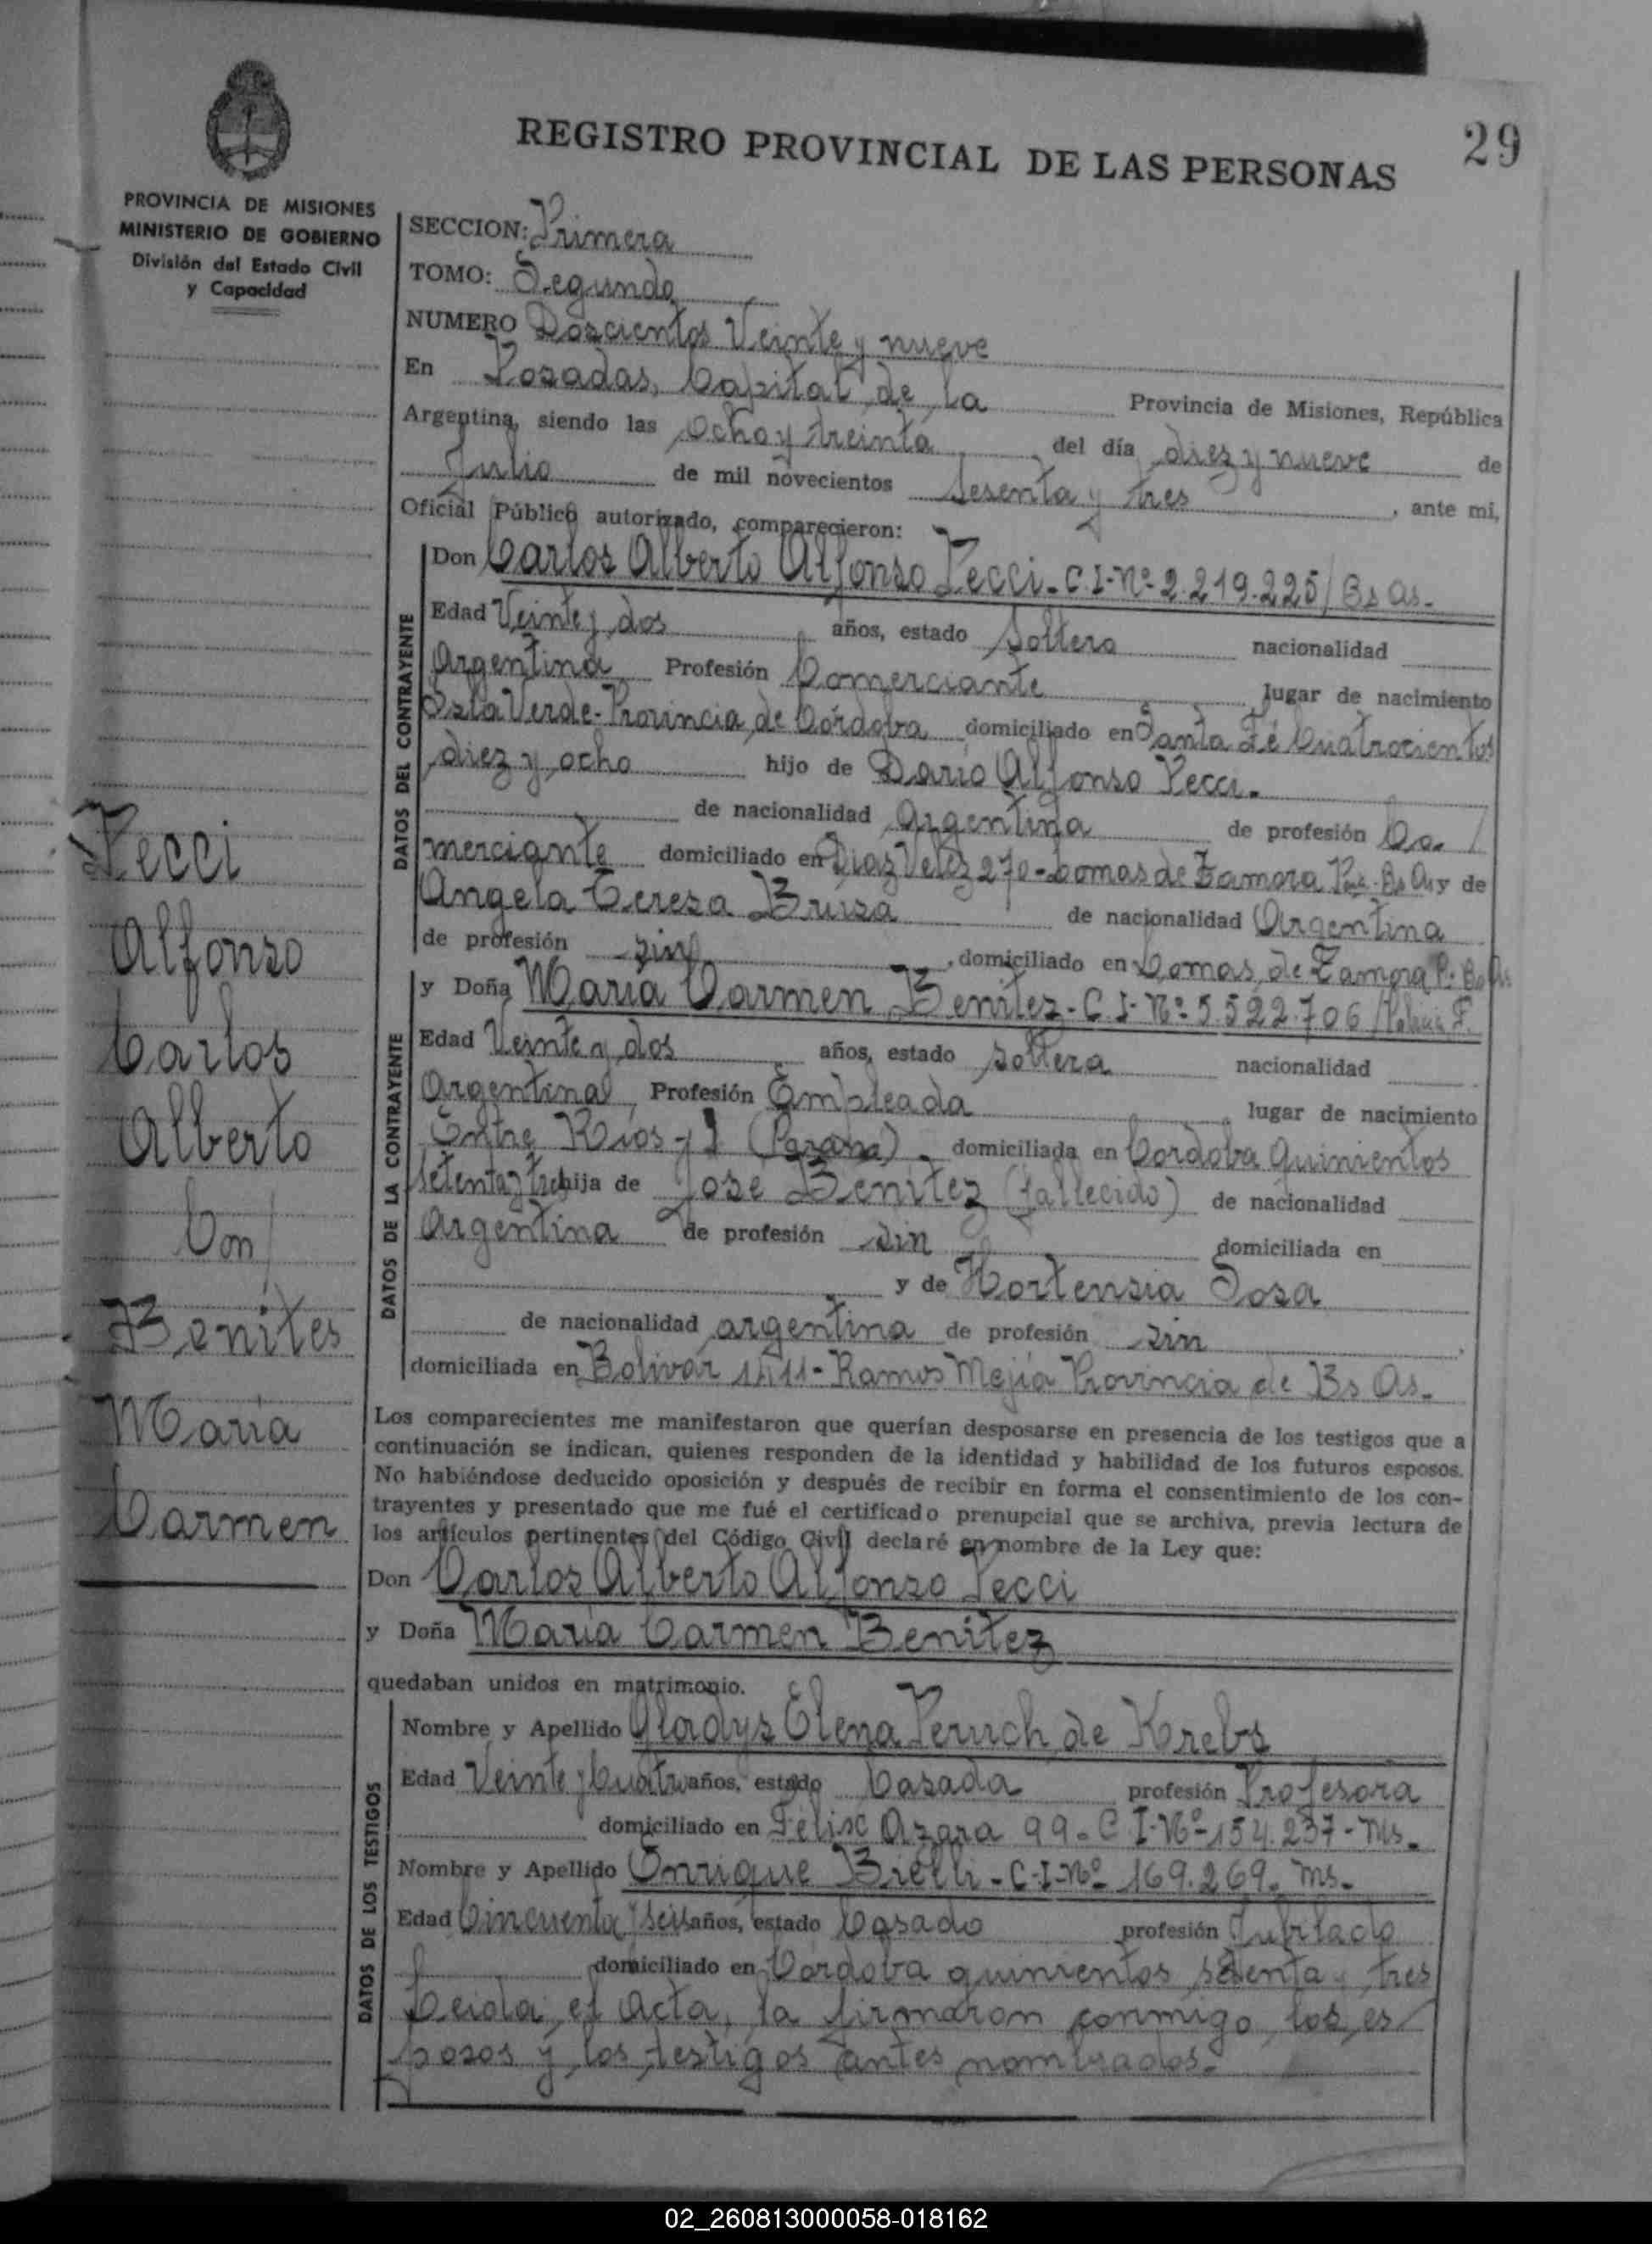 29
REGISTRO PROVINCIAL DE LAS PERSONAS
PROVINCIA DE MISIONES
MINISTERIO DE GOBIERNO
División del Estado Civil
y Capacidad
SECCION: Primera
TOMO: Segundo
NUMERO Doscientos Veinte y nueve
En Posadas, Capital de la Provincia de Misiones, República
Argentina, siendo las ocho y treinta del día diez y nueve de
Julio de mil novecientos sesenta y tres, ante mi,
Oficial Público autorizado, comparecieron:
DATOS DEL CONTRAYENTE
Don Carlos Alberto Alfonso Pecci - C.I-Nº-2.219.225/Bs As.
Edad Veinte y dos años, estado Soltero nacionalidad
Argentina Profesión Comerciante lugar de nacimiento
Isla Verde-Provincia de Córdoba domiciliado en Santa Fé Cuatrocientos
diez y ocho hijo de Dario Alfonso Pecci.
de nacionalidad Argentina de profesión Co-/
merciante domiciliado en Diaz Velez 270-Lomas de Zamora Bs As y de
Angela Teresa de nacionalidad Argentina
de profesión sin, domiciliado en Lomas de Zamora P. Bs As
DATOS DE LA CONTRAYENTE
y Doña Maria Carmen Benitez - C I-Nº 5.522.706
Edad Veinte y dos años, estado soltera nacionalidad
Argentina Profesión Empleada lugar de nacimiento
Entre Rios (Paraná) domiciliada en Cordoba quinientos
setenta y tres hija de José Benitez (fallecido) de nacionalidad
Argentina de profesión sin domiciliada en
y de Hortensia Sosa
de nacionalidad argentina de profesión sin
domiciliada en Bolivar - Ramos Mejia Provincia de Bs As.
Los comparecientes me manifestaron que querían desposarse en presencia de los testigos que a
continuación se indican, quienes responden de la identidad y habilidad de los futuros esposos.
No habiéndose deducido oposición y después de recibir en forma el consentimiento de los con-
trayentes y presentado que me fué el certificado prenupcial que se archiva, previa lectura de
los artículos pertinentes del Código Civil declaré en nombre de la Ley que:
Don Carlos Alberto Alfonso Pecci
y Doña Maria Carmen Benitez
quedaban unidos en matrimonio.
DATOS DE LOS TESTIGOS
Nombre y Apellido Gladys Elena Peruch de Krebs
Edad Veinte y Cuatro años, estado Casada profesión Profesora
domiciliado en Felix Azara 99. C I-Nº-154.237-Ms.
Nombre y Apellido Enrique Bielli - C-I-Nº 169.269. Ms.
Edad Cincuenta y seis años, estado Casado profesión Jubilado
domiciliado en Cordoba quinientos setenta y tres
Leida el Acta, la firmaron conmigo los es/
posos y los testigos antes nombrados.
Pecci
Alfonso
Carlos
Alberto
Con/
Benites
Maria
Carmen
02_260813000058-018162